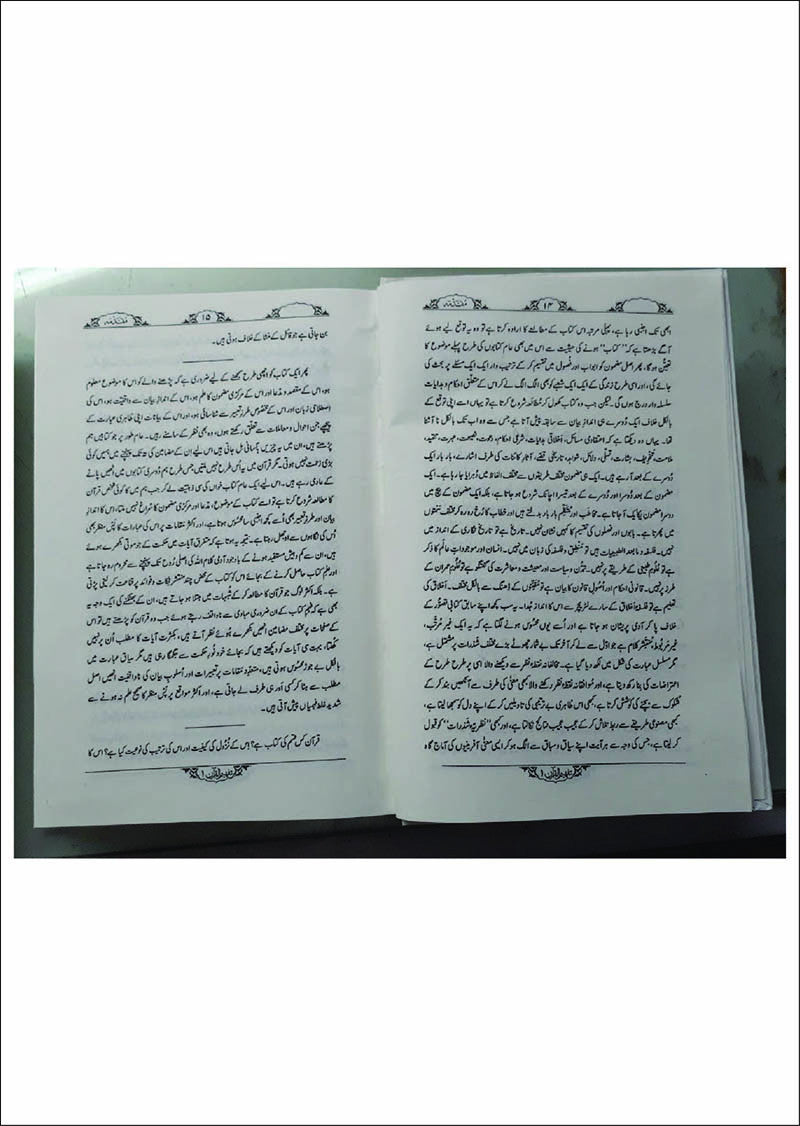 مقدمہ
۱۴
ابھی تک اجنبی رہا ہے، پہلی مرتبہ اس کتاب کے مطالعے کا ارادہ کرتا ہے تو وہ یہ توقع لیے ہوئے
آگے بڑھتا ہے کہ ’’کتاب‘‘ ہونے کی حیثیت سے اس میں بھی عام کتابوں کی طرح پہلے موضوع کا
تعیّن ہوگا، پھر اصل مضمون کو ابواب اور فُصول میں تقسیم کر کے ترتیب وار ایک ایک مسئلے پر بحث کی
جائے گی، اور اسی طرح زندگی کے ایک ایک شعبے کو بھی الگ الگ لے کر اس کے متعلق احکام و ہدایات
سلسلہ وار درج ہوں گی۔ لیکن جب وہ کتاب کھول کر مُطالعہ شروع کرتا ہے تو یہاں اسے اپنی توقع کے
بالکل خلاف ایک دُوسرے ہی اندازِ بیان سے سابقہ پیش آتا ہے، جس سے وہ اب تک بالکل نا آشنا
تھا۔ یہاں وہ دیکھتا ہے کہ اعتقادی مسائل، اخلاقی ہدایات، شرعی احکام، دعوت، نصیحت، عبرت، تنقید،
ملامت، تخویف، بشارت، تسلّی، دلائل، شواہد، تاریخی قصّے، آثارِ کائنات کی طرف اشارے، بار بار ایک
دُوسرے کے بعد آ رہے ہیں۔ ایک ہی مضمون مختلف طریقوں سے مختلف الفاظ میں دُہرایا جا رہا ہے۔ ایک
مضمون کے بعد دُوسرا اور دُوسرے کے بعد تیسرا اچانک شروع ہو جاتا ہے، بلکہ ایک مضمون کے بیچ میں
دوسرا مضمون یکایک آ جاتا ہے۔ مخاطَب اور متکلّم بار بار بدلتے ہیں اور خطاب کا رُخ رہ رہ کر مختلف سَمتوں
میں پھرتا ہے۔ بابوں اور فصلوں کی تقسیم کا کہیں نشان نہیں۔ تاریخ ہے تو تاریخ نگاری کے انداز میں
نہیں۔ فلسفہ و ما بعد الطبیعیات ہیں تو مَنْطِق و فلسفہ کی زبان میں نہیں۔ انسان اور موجوداتِ عالَم کا ذکر
ہے تو عُلومِ طبیعی کے طریقے پر نہیں۔ تمدّن و سیاست اور معیشت و معاشرت کی گفتگو ہے تو عُلومِ عمران کے
طرز پر نہیں۔ قانونی احکام اور اُصُولِ قانون کا بیان ہے تو مقنّنوں کے ڈھنگ سے بالکل مختلف۔ اخلاق کی
تعلیم ہے تو فلسفۂ اخلاق کے سارے لٹریچر سے اس کا انداز جُدا۔ یہ سب کچھ اپنے سابق کتابی تصوّر کے
خلاف پا کر آدمی پریشان ہو جاتا ہے اور اُسے یوں محسُوس ہونے لگتا ہے کہ یہ ایک غیر مُرتَّب،
غیر مَربُوط، مُنتشِر کلام ہے جو اوّل سے لے کر آخر تک بے شمار چھوٹے بڑے مختلف شَذرات پر مشتمل ہے،
مگر مسلسل عبارت کی شکل میں لکھ دیا گیا ہے۔ مخالفانہ نقطۂ نظر سے دیکھنے والا اسی پر طرح طرح کے
اعتراضات کی بنا رکھ دیتا ہے، اور مُوافقانہ نقطۂ نظر رکھنے والا کبھی معنی کی طرف سے آنکھیں بند کر کے
شکُوک سے بچنے کی کوشش کرتا ہے، کبھی اس ظاہری بے ترتیبی کی تاویلیں کر کے اپنے دل کو سمجھا لیتا ہے،
کبھی مصنوعی طریقے سے ربط تلاش کر کے عجیب عجیب نتائج نکالتا ہے، اور کبھی ’’نظریۂ شذرات‘‘ کو قبول
کر لیتا ہے، جس کی وجہ سے ہر آیت اپنے سیاق و سباق سے الگ ہو کر ایسی معنٰی آفرینیوں کی آماج گاہ
تفہیم القرآن ۱
مقدمہ
۱۵
بن جاتی ہے جو قائل کے مَنشا کے خلاف ہوتی ہیں۔
پھر ایک کتاب کو اچھی طرح سمجھنے کے لیے ضروری ہے کہ پڑھنے والے کو اس کا موضوع معلوم
ہو، اس کے مقصد و مدّعا اور اس کے مرکزی مضمون کا علم ہو، اس کے اندازِ بیان سے واقفیت ہو، اس کی
اصطلاحی زبان اور اس کے مخصُوص طرزِ تعبیر سے شناسائی ہو، اور اس کے بیانات اپنی ظاہری عبارت کے
پیچھے جن احوال و معاملات سے تعلق رکھتے ہوں، وہ بھی نظر کے سامنے ہیں۔ عام طور پر جو کتابیں ہم
پڑھتے ہیں، ان میں یہ چیزیں بآسانی مل جاتی ہیں اس لیے ان کے مضامین کی تہ تک پہنچنے میں ہمیں کوئی
بڑی زحمت نہیں ہوتی۔ مگر قرآن میں یہ اُس طرح نہیں ملتیں جس طرح ہم دُوسری کتابوں میں انھیں پانے
کے عادی رہے ہیں۔ اس لیے ایک عام کتاب خواں کی سی ذہنیت لے کر جب ہم میں کا کوئی شخص قرآن
کا مطالعہ شروع کرتا ہے تو اسے کتاب کے موضوع، مدّعا اور مرکزی مضمون کا سُراغ نہیں ملتا، اس کا اندازِ
بیان اور طرزِ تعبیر بھی اُسے کچھ اجنبی سا محسُوس ہوتا ہے، اور اکثر مقامات پر اس کی عبارات کا پس منظر بھی
اُس کی نگاہوں سے اوجھل رہتا ہے۔ نتیجہ یہ ہوتا ہے کہ متفرق آیات میں حکمت کے جو موتی بکھرے ہوئے
ہیں، ان سے کم و بیش مستفید ہونے کے باوجود آدمی کلام اللہ کی اصلی رُوح تک پہنچنے سے محروم رہ جاتا ہے
اور علمِ کتاب حاصل کرنے کے بجائے اس کو کتاب کے محض چند منتشر نکات و فوائد پر قناعت کر لینی پڑتی
ہے۔ بلکہ اکثر لوگ جو قرآن کا مطالعہ کر کے شُبہات میں مبتلا ہو جاتے ہیں، ان کے بھٹکنے کی ایک وجہ یہ
بھی ہے کہ فہمِ کتاب کے ان ضروری مبادی سے ناواقف رہتے ہوئے جب وہ قرآن کو پڑھتے ہیں تو اس
کے صفحات پر مختلف مضامین انھیں بکھرے ہُوئے نظر آتے ہیں، بکثرت آیات کا مطلب اُن پر نہیں
کھُلتا، بہت سی آیات کو دیکھتے ہیں کہ بجائے خود نُورِ حکمت سے جگمگا رہی ہیں مگر سیاقِ عبارت میں
بالکل بے جوڑ محسُوس ہوتی ہیں، متعدّد مقامات پر تعبیرات اور اُسلوبِ بیان کی ناواقفیت انھیں اصل
مطلب سے ہٹا کر کسی اَور ہی طرف لے جاتی ہے، اور اکثر مواقع پر پَس منظر کا صحیح علم نہ ہونے سے
شدید غلط فہمیاں پیش آتی ہیں۔
قرآن کس قسم کی کتاب ہے؟ اِس کے نُزُول کی کیفیت اور اس کی ترتیب کی نوعیت کیا ہے؟ اس کا
تفہیم القرآن ۱